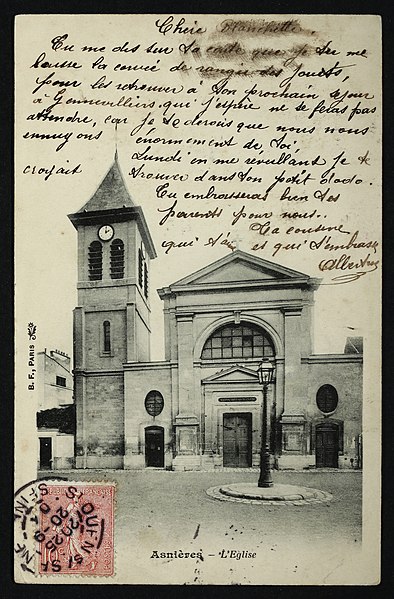 Chère Blanchette
Tu me dis sur ta carte que je
laisse la corvée de ranger des jouets,
pour les retrouver à ton prochain séjour
à Gennevilliers, qui j'espère ne se feras pas
attendre, car je te dirais que nous nous
ennuyons énormement de toi,
Lundi en me réveillant je te
croyait trouver dans ton petit dodo.
Tu embrasseras bien tes
parents pour nous..
Ta cousine
qui et qui t'embrasse
B. F., PARIS
Asnières – L'Eglise